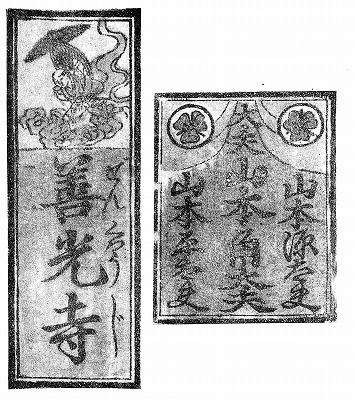 山本源太夫
太夫 山本角太夫
山本
善光寺
ぜんくわうじ